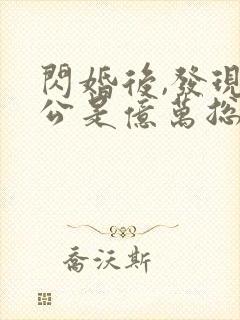 閃婚後,發現
公是億萬総
喬沃斯